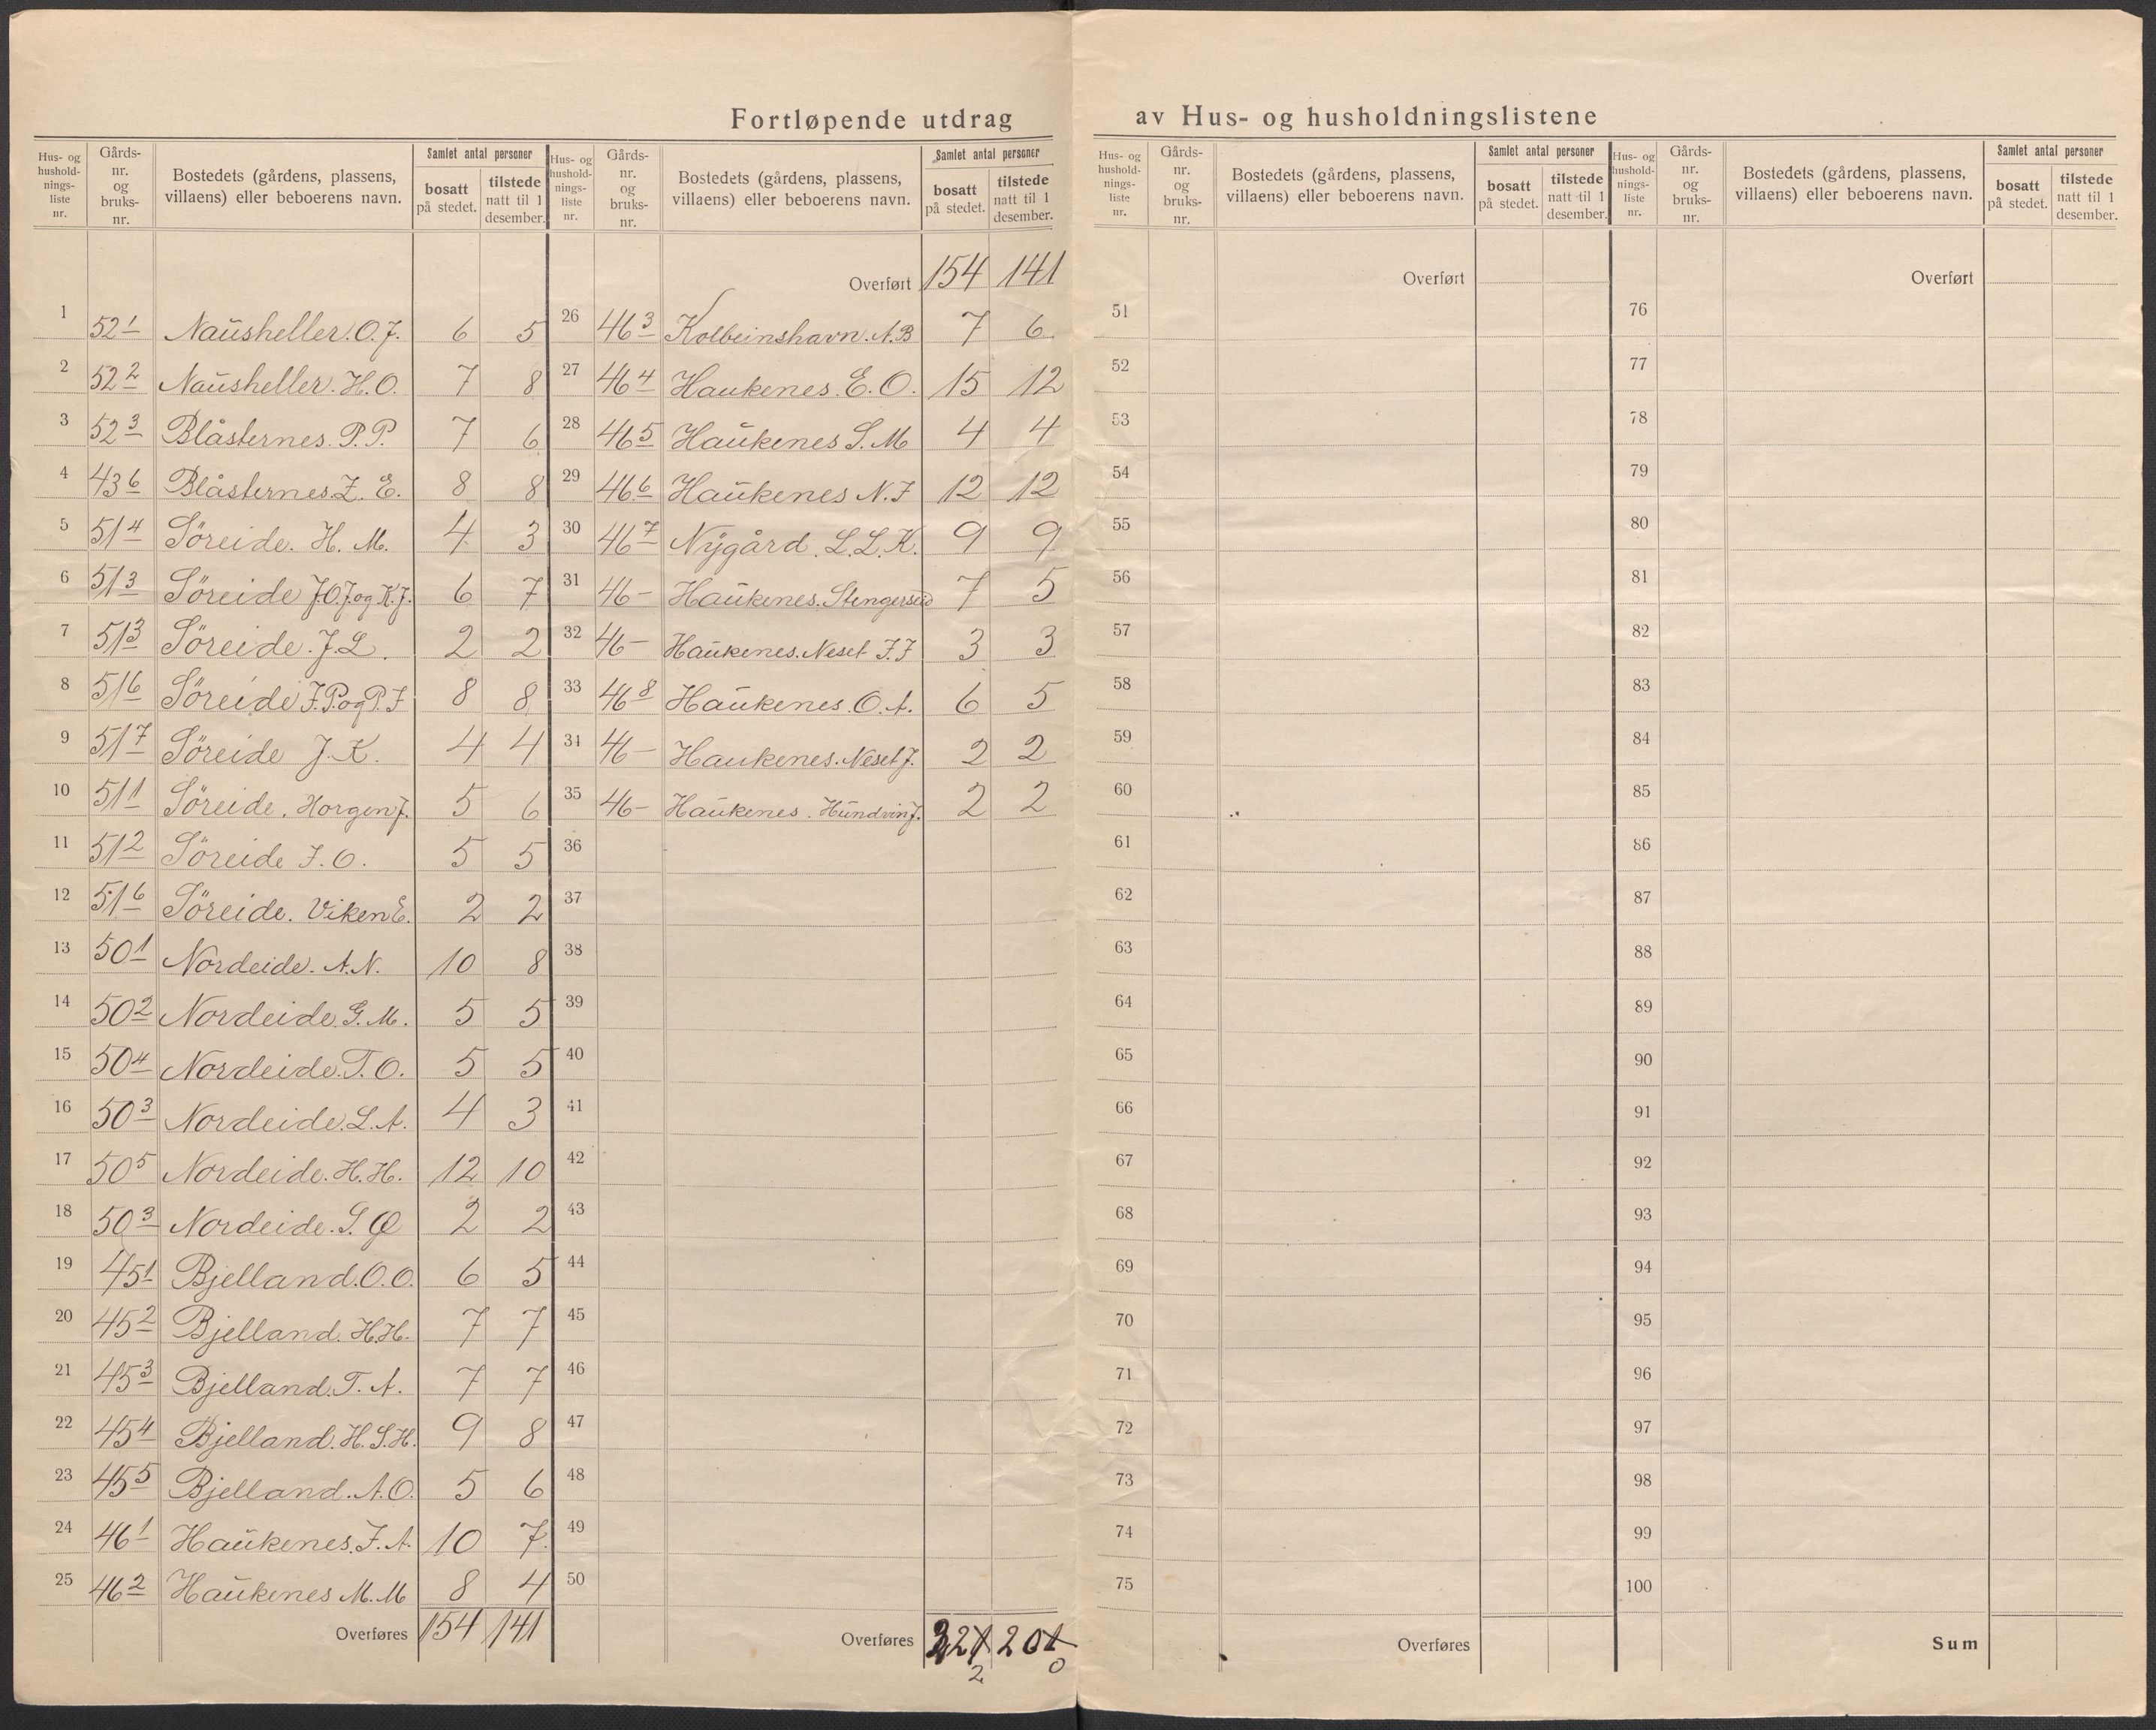 Fortløpende utdrag av Hus- og husholdningslistene
Hus- og husholdningsliste nr. | Gårds-nr. og bruks-nr. | Bostedets (gårdens, plassens, villaens) eller beboerens navn. | Samlet antal personer | bosatt på stedet. | tilstede natt til 1 desember.
1 52 1 Naŭsheller. O.J. 6 5
2 52 2 Naŭsheller. H.O. 7 8
3 52 3 Blåsternes. P.P. 7 6
4 43 6 Blåsternes. Z. E. 8 8
5 51 4 Söreide. H. M. 4 3
6 51 3 Söreide J.O.J. og K.J. 6 7
7 51 3 Söreide. J.L. 2 2
8 51 6 Söreide J.P. og P.J 8 8
9 51 7 Söreide J.K. 4 4
10 51 1 Söreide. Horgen J. 5 6
11 51 2 Söreide J.O. 5 5
12 51 6 Söreide. Viken E. 2 2
13 50 1 Nordeide. A.N. 10 8
14 50 2 Nordeide. G.M. 5 5
15 50 4 Nordeide. T.O. 5 5
16 50 3 Nordeide. L.A. 4 3
17 50 5 Nordeide. H.H. 12 10
18 50 3 Nordeide. S. Ø 2 2
19 45 1 Bjelland. O.O. 6 5
20 45 2 Bjelland. H.H. 7 7
21 45 3 Bjelland. T. A. 7 7
22 45 4 Bjelland. H.S.H. 9 8
23 45 5 Bjelland. A.O. 5 6
24 46 1 Haŭkenes. J. A. 10 7
25 46 2 Haŭkenes M.M 8 4
Overføres 154 141
Hus- og husholdningsliste nr. | Gårds-nr. og bruks-nr. | Bostedets (gårdens, plassens, villaens) eller beboerens navn. | Samlet antal personer | bosatt på stedet. | tilstede natt til 1 desember.
Overført 154 141
26 46 3 Kolbeinshavn. A.B 7 6
27 46 4 Haukenes. E. O. 15 12
28 46 5 Haŭkenes S. M 4 4
29 46 6 Haŭkenes N. J 12 12
30 46 7 Nygård. L.L.K. 9 9
31 46 - Haŭkenes. 7 5
32 46 - Haŭkenes. Neset J.J 3 3
33 46 8 Haŭkenes. O. A. 6 5
34 46 - Haukenes. Neset J. 2 2
35 46 - Haŭkenes. Hŭndvin J. 2 2
36
37
38
39
40
41
42
43
44
45
46
47
48
49
50
Overføres 221 201
2 0
Hus- og husholdningsliste nr. | Gårds-nr. og bruks-nr. | Bostedets (gårdens, plassens, villaens) eller beboerens navn. | Samlet antal personer | bosatt på stedet. | tilstede natt til 1 desember.
Overført
51
52
53
54
55
56
57
58
59
60
61
62
63
64
65
66
67
68
69
70
71
72
73
74
75
Overføres
Hus- og husholdningsliste nr. | Gårds-nr. og bruks-nr. | Bostedets (gårdens, plassens, villaens) eller beboerens navn. | Samlet antal personer | bosatt på stedet. | tilstede natt til 1 desember.
Overført
76
77
78
79
80
81
82
83
84
85
86
87
88
89
90
91
92
93
94
95
96
97
98
99
100
Sum